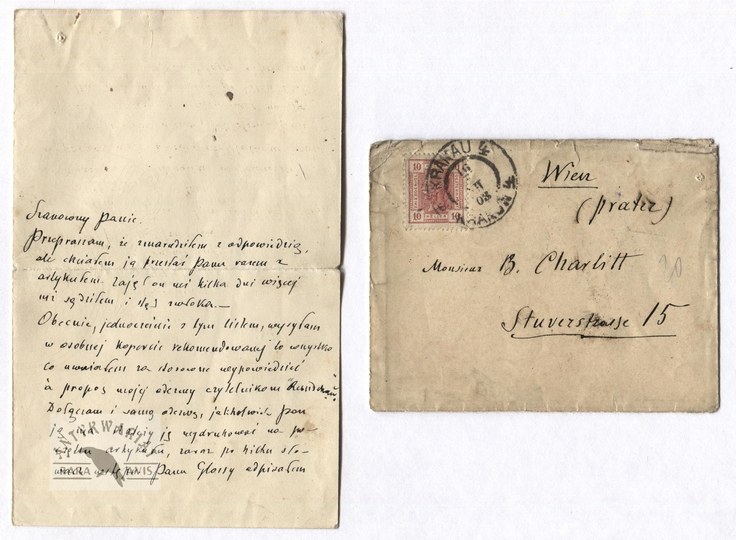 Szanowny Panie.
Przepraszam, że zmarudziłem z odpowiedzią,
ale chciałem ją przesłać Panu razem z
artykułem. Zajął on mi kilka dni więcej
niż sądziłem i stąd zwłoka.—
Obecnie, jednocześnie z tym listem, wysyłam
w osobnej kopercie rekomendowanej to wszystko
co uważałem za stosowne wypowiedzieć
à propos mojej odezwy czytelnikom
Dołączam i samą odezwę,
ją wydrukować na po-
artykułu, zaraz po kilku sło-
Panu Glossy odpisałem
ANTYKWARIAT
RARA AVIS
KRAKAU
KRAKÓW
10 10
Wien
(Prater)
Monsieur B. Charlitt
Stuverstrasse 15
20